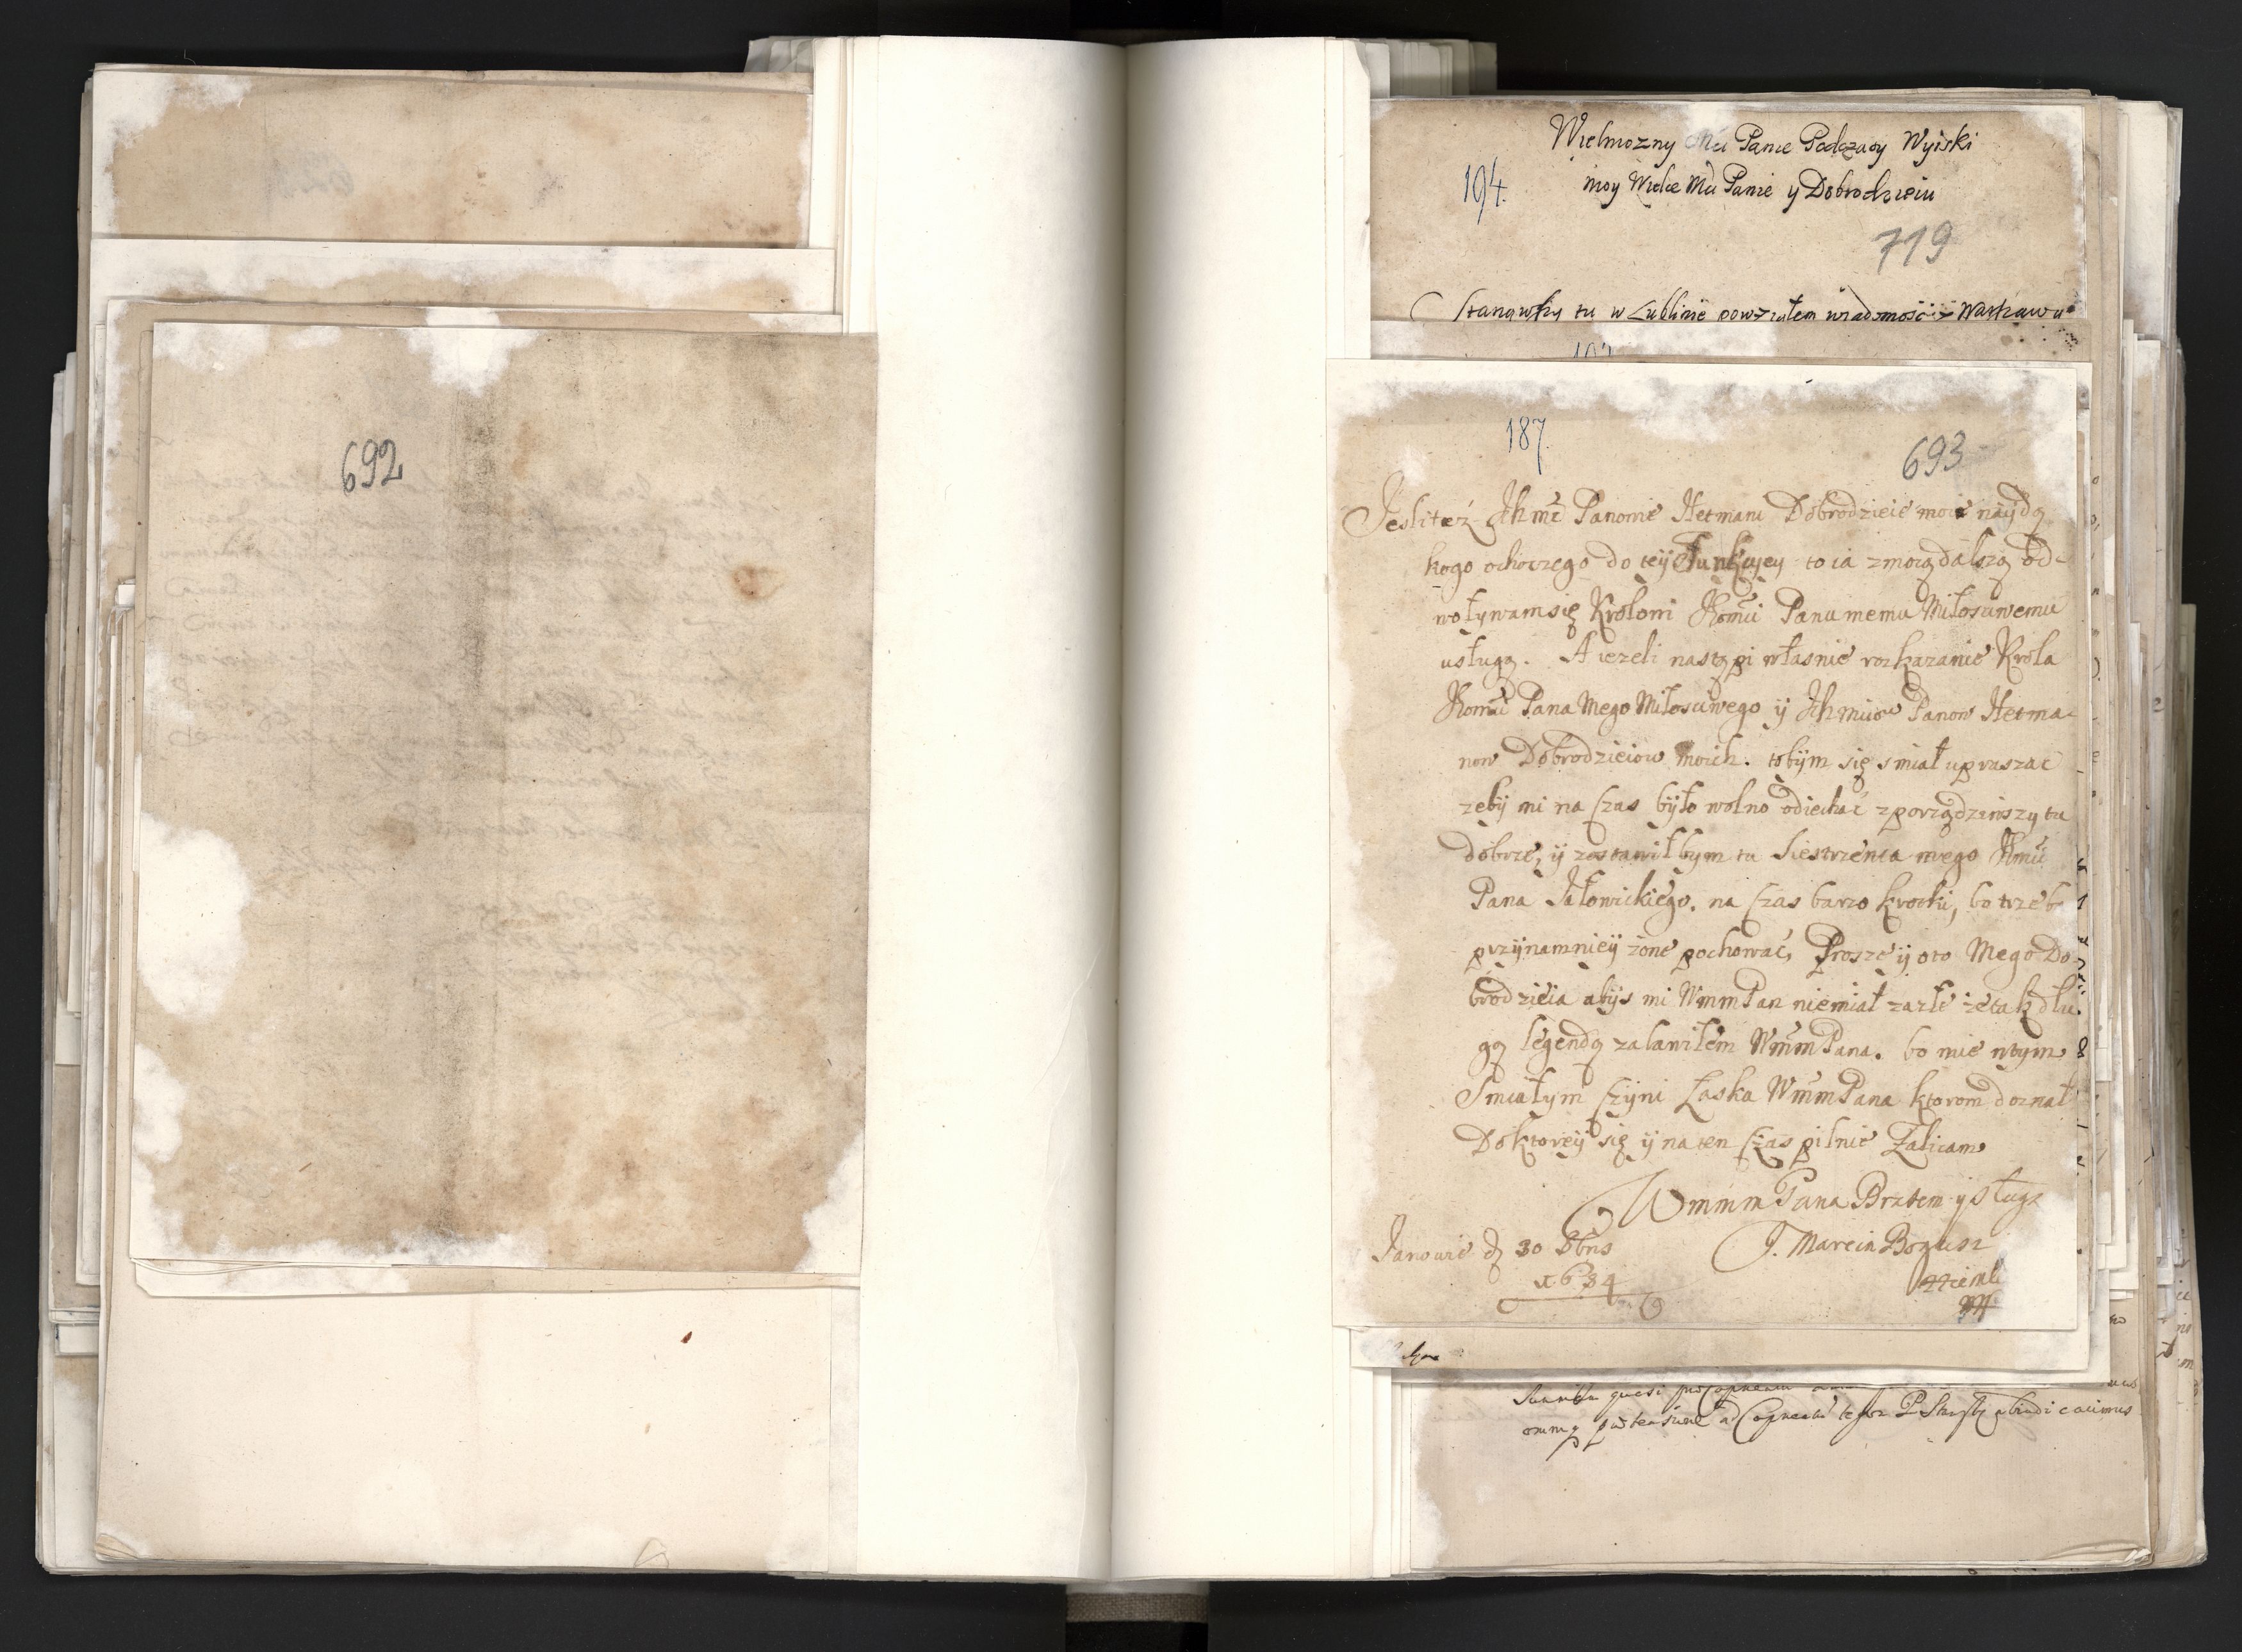 692
Wielmozny Mci Panie Podczasy Wyiski
194.
moy Wielce Mci Panie y Dobrodzieiu
719
Stanąwszy tu w Lublinie powziąłem wiadomość z Warszawy
187.
693
Jeslitez Ichmc Panowie Hetmani Dobrodzieie moie naydą
kogo ochoczego do teÿ funkcyey to ia zmoią dalszą od-
woływam się Krolowi Jhomci Panu memu Miłosciwemu
usługą. A iezeli nastąpi własnie rozkazanie Krola
Jhomci Pana Mego Miłosciwego ÿ Ichmciow Panow Hetma-
now Dobrodzieiow moich. tobÿm się smiał upraszac
zebÿ mi na czas bÿło wolno odiechać zporządziwszy tu
dobrze, ÿ zostawiłbym tu Siestrzenca mego Jhmci
Pana Jałowickiego. na czas barzo krotki, bo trzeb
przÿnamnieÿ zone pochować, Prosze ÿ oto Mego Do-
brodzieia abÿs mi WmmPan niemiał zazłe zetak dłu-
gą legendą zabawiłem WmmPana. bo mie wtym
Smiałym czÿni Łaska WmmPana ktorom doznał
Doktoreÿ się ÿ na ten czas pilnie Zalicam
WmmmPana Bratem ÿ sługą
Janowie d 30 8bris
J. Marcin Bogusz
1634